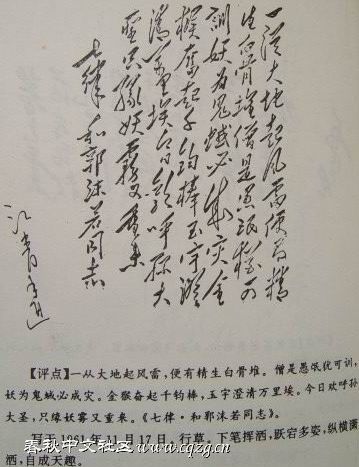 一從大地起風雷便有精
生白骨堆僧是愚氓猶可
訓妖為鬼蜮必成災金
猴奮起千鈞棒玉宇澄
清萬里埃今日歡呼孫大
聖只緣妖霧又重來
七律 和郭沫若同志
【评点】一从大地起风雷，便有精生白骨堆。僧是愚氓犹可训，
妖为鬼蜮必成灾。金猴奋起千钧棒，玉宇澄清万里埃。今日欢呼孙
大圣，只缘妖雾又重来。《七律·和郭沫若同志》。
写于1961年11月17日。行草。下笔挥洒，跌宕多姿，纵横潇
洒，自成天趣。
春秋中文社区 www.cqzg.cn